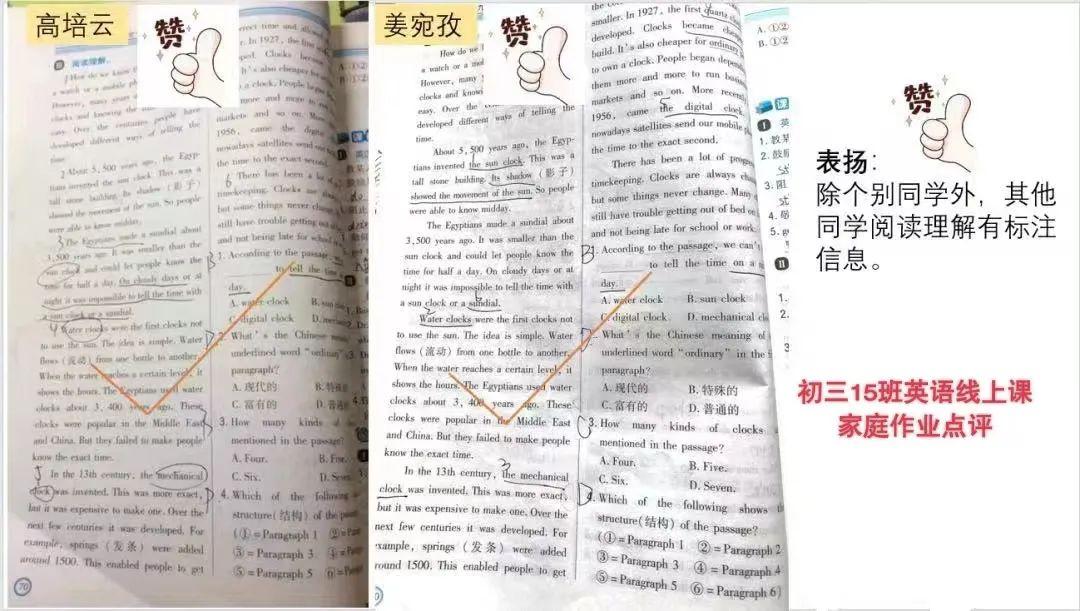 高培云
赞
阅读理解。
1 How do we know t
a watch or a mobile ph
However, many years a
clocks and knowing the
easy. Over the centuries people have
developed different ways of telling the
time.
2 About 5,500 years ago, the Egyp-
tians invented the sun clock. This was a
tall stone building. Its shadow (影子)
showed the movement of the sun. So people
were able to know midday.
3 The Egyptians made a sundial about
3,500 years ago. It was smaller than the
sun clock and could let people know the
time for half a day. On cloudy days or at
night it was impossible to tell the time with
a sun clock or a sundial.
4 Water clocks were the first clocks not
to use the sun. The idea is simple. Water
flows (流动) from one bottle to another.
When the water reaches a certain level, it
shows the hours. The Egyptians used water
clocks about 3,400 years ago. These
clocks were popular in the Middle East
and China. But they failed to make people
know the exact time.
5 In the 13th century, the mechanical
clock was invented. This was more exact,
but it was expensive to make one. Over the
next few centuries it was developed. For
example, springs (发条) were added
around 1500. This enabled people to get
70
rect time and
er. In 1927, the first
ed. Clocks became
It's also cheaper for
a clock. People began
more and more to run
markets and so on. More
1956, came the digital
nowadays satellites send our
the time to the exact second.
6 There has been a lot of
timekeeping. Clocks are always
but some things never change.
still have trouble getting out of
and not being late for school
1. According to the passage,
to tell the time
day.
A. water clock B. sun
C. digital clock D. mec
2. What's the Chinese
underlined word "ordinary"
paragraph?
A. 现代的 B. 特殊
C. 富有的 D. 普通
3. How many kinds of
mentioned in the passage?
A. Four. B. Five.
C. Six. D. Seve
4. Which of the following
structure(结构) of the pass
(①=Paragraph 1 ②=Para
③=Paragraph 3 ④=Para
⑤=Paragraph 5 ⑥=Para
姜宛孜
赞
How do we
a watch or a mo
However, many
clocks and know
easy. Over the
developed different ways of telling the
time.
About 5,500 years ago, the Egyp-
tians invented the sun clock. This was a
tall stone building. Its shadow (影子)
showed the movement of the sun. So people
were able to know midday.
The Egyptians made a sundial about
3,500 years ago. It was smaller than the
sun clock and could let people know the
time for half a day. On cloudy days or at
night it was impossible to tell the time with
a sun clock or a sundial.
Water clocks were the first clocks not
to use the sun. The idea is simple. Water
flows (流动) from one bottle to another.
When the water reaches a certain level, it
shows the hours. The Egyptians used water
clocks about 3,400 years ago. These
clocks were popular in the Middle East
and China. But they failed to make people
know the exact time.
In the 13th century, the mechanical
clock was invented. This was more exact,
but it was expensive to make one. Over the
next few centuries it was developed. For
example, springs (发条) were added
around 1500. This enabled people to get
smaller. In 1927, the first quartz
developed. Clocks became cheap
build. It's also cheaper for ordinary
to own a clock. People began depen
them more and more to run busin
markets and so on. More recent
1956, came the digital clock
nowadays satellites send our mobile
the time to the exact second.
There has been a lot of progre
timekeeping. Clocks are always cha
but some things never change. Many
still have trouble getting out of bed on
and not being late for school or work
1. According to the passage, we can't
to tell the time on a
day.
A. water clock B. sun clock
C. digital clock D. mechanical clo
2. What's the Chinese meaning of
underlined word "ordinary" in the
paragraph?
A. 现代的 B. 特殊的
C. 富有的 D. 普通的
3. How many kinds of clocks
mentioned in the passage?
A. Four. B. Five.
C. Six. D. Seven.
4. Which of the following shows
structure(结构) of the passage?
(①=Paragraph 1 ②=Paragraph 2
③=Paragraph 3 ④=Paragraph 4
⑤=Paragraph 5 ⑥=Paragraph 6)
赞
表扬：
除个别同学外，其他
同学阅读理解有标注
信息。
初三15班英语线上课
家庭作业点评